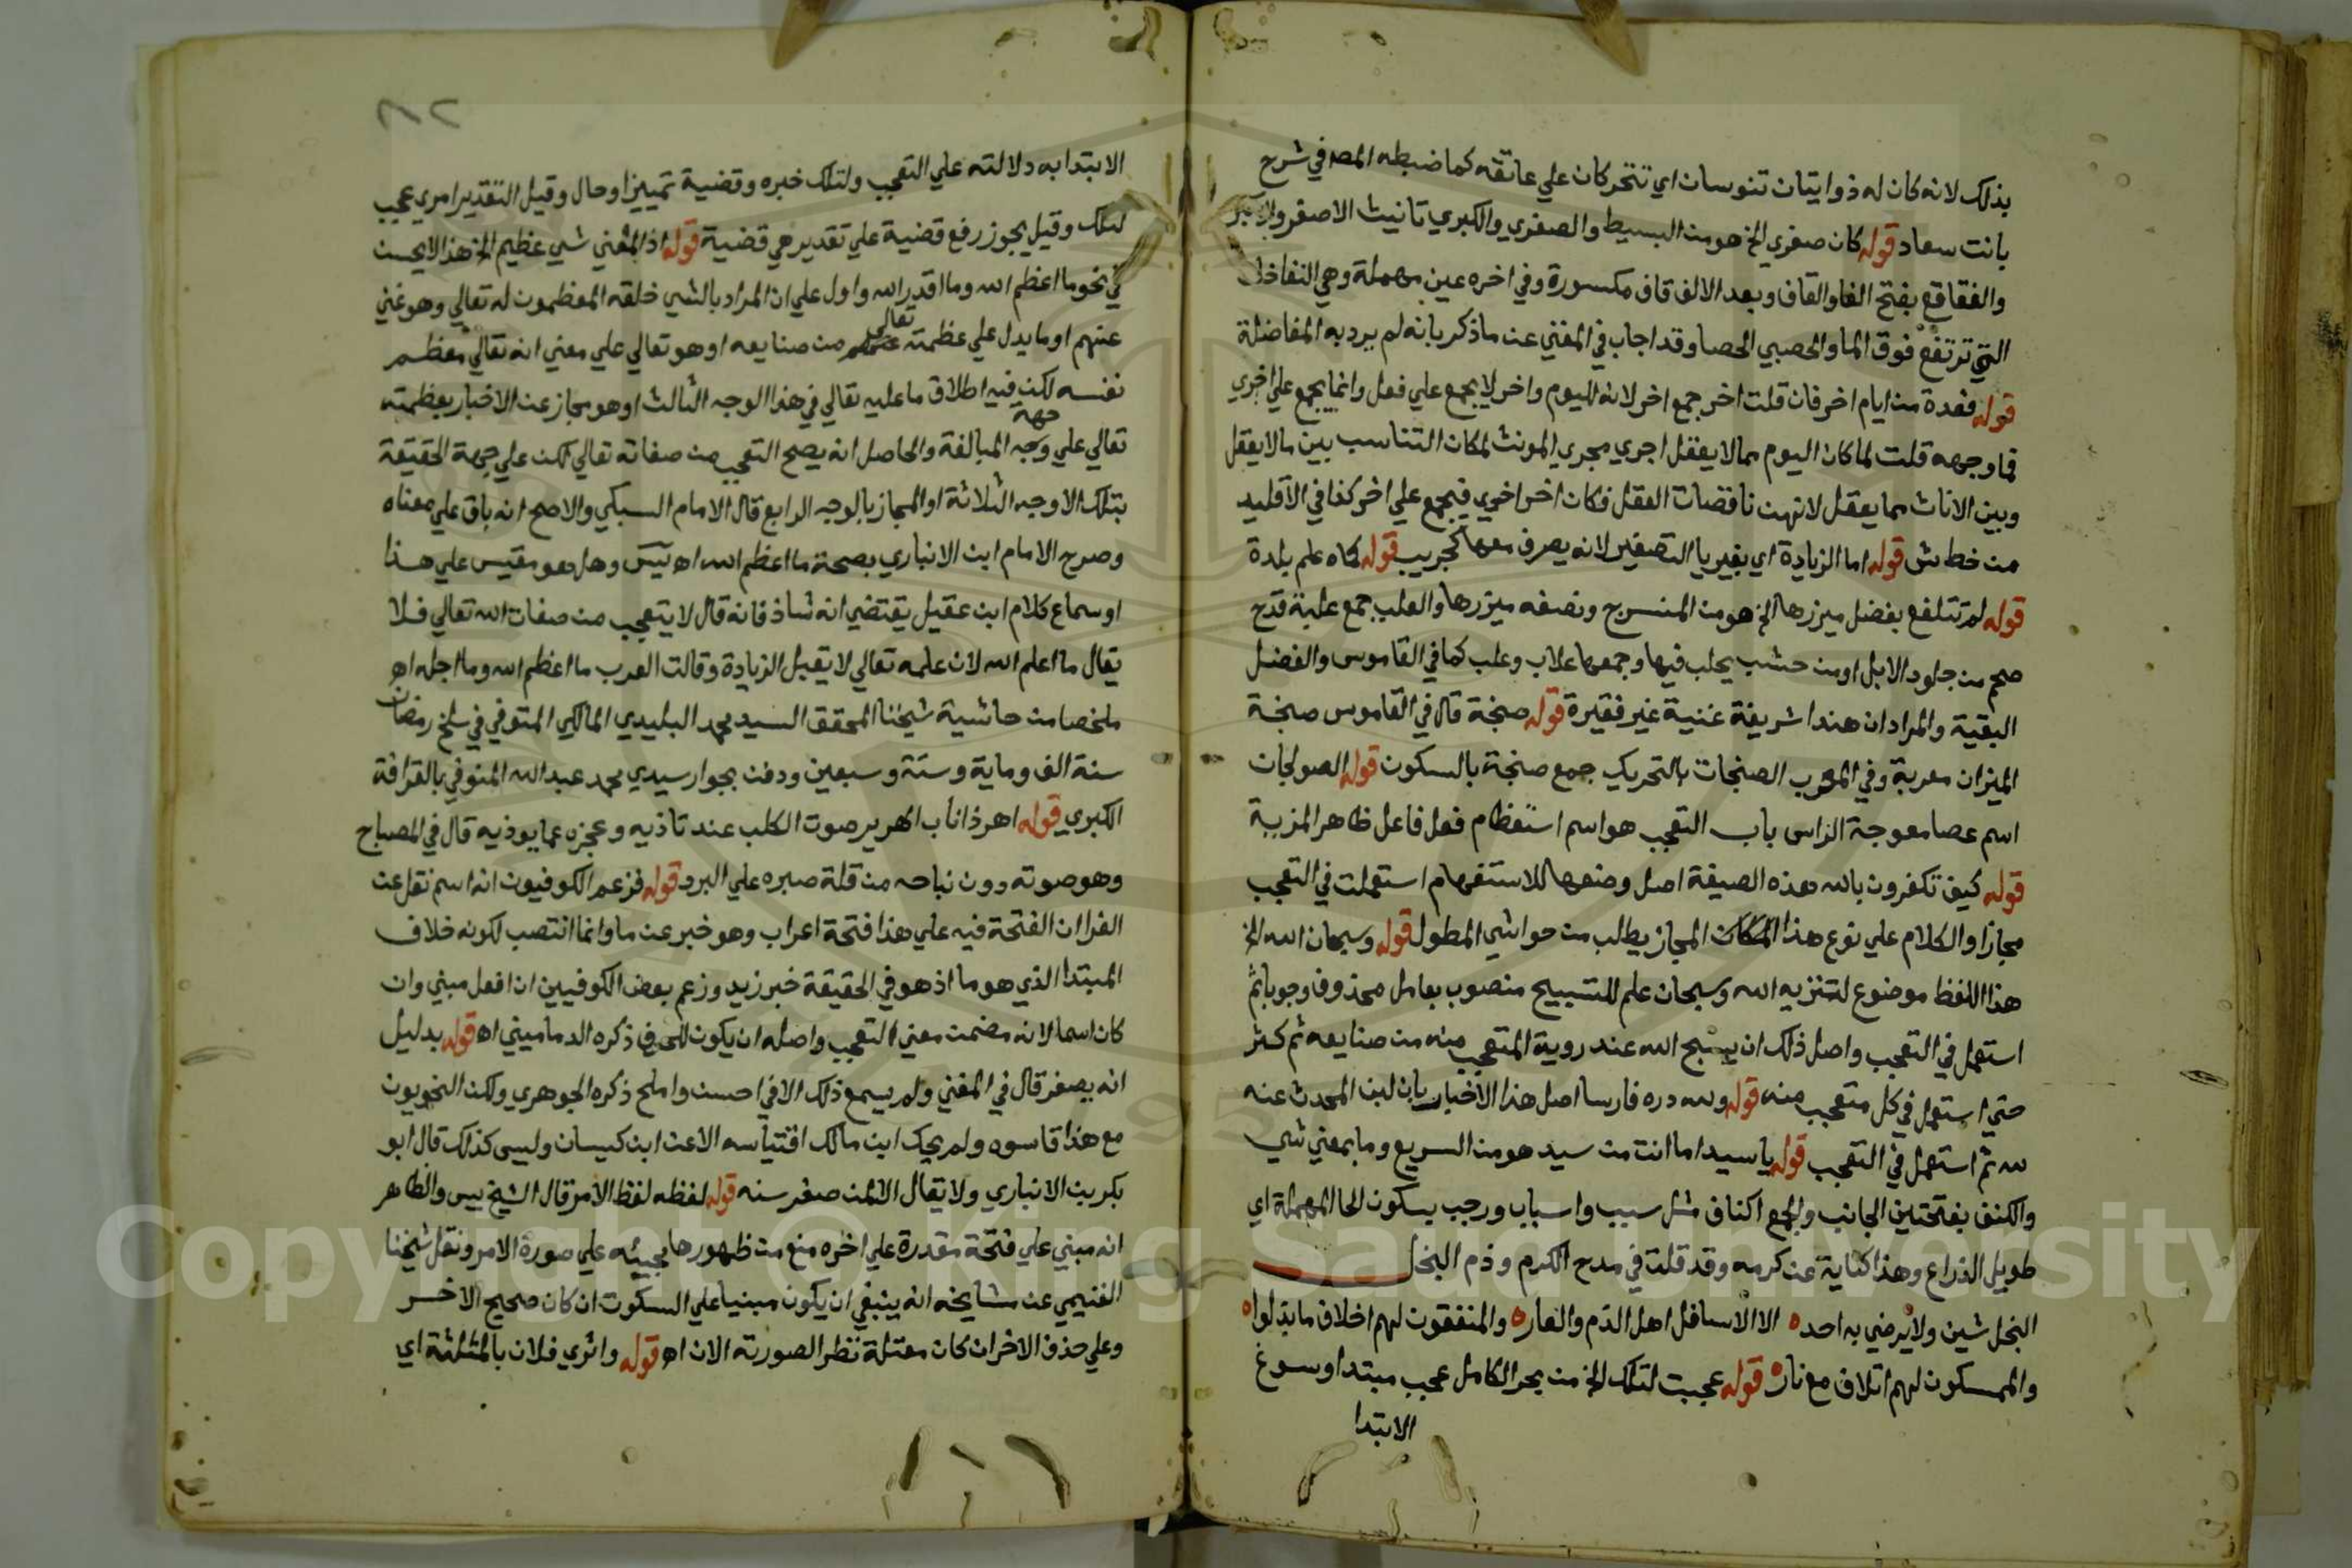 بذلك لانه كان له ذوابتان تنوسان اي تتحركان علي عاتقه كما ضبطه المص في شرح
بانت سعاد قوله كان صغري الخ هو من البسيط والصغري والكبري تانيث الاصغر والاكبر
والفقاقع بفتح الفا والقاف وبعد الالف قاف مكسورة وفي اخره عين مهملة وهي النفاخات
التي ترتفع فوق الما والحصبي الحصا وقد اجاب في المغني عن ما ذكر بانه لم يرد به المفاضلة
قوله فعدة من ايام اخر فان قلت اخر جمع اخر لانه لليوم واخر لا يجمع علي فعل وانما يجمع علي اخري
فما وجهه قلت لما كان اليوم مما لا يعقل اجري مجري المونث لمكان التناسب بين ما لا يعقل
وبين الاناث مما يعقل لانهن ناقصات العقل فكان اخر اخري فيجمع علي اخر كذا في الاقليد
من خط ش قوله اما الزيادة اي بغير يا التصغير لانه يصرف معها كجريب قوله كماه علم بلدة
قوله لم تتلفع بفضل ميزرها الخ هو من المنسرح ونصفه ميزرها والعلب جمع علبة قدح
ضخم من جلود الابل او من خشب يحلب فيها وجمعها علاب وعلب كما في القاموس والفضل
البقية والمراد ان هندا شريفة غنية غير فقيرة قوله صنجة قال في القاموس صنجة
الميزان معربة وفي المغرب الصنجات بالتحريك جمع صنجة بالسكون قوله الصولجان
اسم عصا معوجة الراس باب التعجب هو اسم استعظام فعل فاعل ظاهر المزية
قوله كيف تكفرون بالله هذه الصيغة اصل وضعها للاستفهام استعملت في التعجب
مجازا والكلام علي نوع هذا المجاز يطلب من حواشي المطول قوله وسبحان الله الخ
هذا اللفظ موضوع لتنزيه الله وسبحان علم للتسبيح منصوب بعامل محذوف وجوبا ثم
استعمل في التعجب واصل ذلك ان يسبح الله عند روية المتعجب منه من صنايعه ثم كثر
حتي استعمل في كل متعجب منه قوله ولله دره فارسا اصل هذا الاخبار بان لبن المحدث عنه
لله ثم استعمل في التعجب قوله يا سيدا ما انت من سيد هو من السريع وما بمعني شي
والكنف بفتحتين الجانب والجمع اكناف مثل سبب واسباب ورحب بسكون الحا المهملة اي
طويل الذراع وهذا كناية عن كرمه وقد قلت في مدح الكرم وذم البخل
البخل شين ولا يرضي به احد ه الا الاسافل اهل الذم والعار ه والمنفقون لهم اخلاف ما بذلوا ه
والممسكون لهم اتلاف مع نار ه قوله عجبت لتلك الخ من بحر الكامل عجب مبتدا وسوغ
الابتدا
٢١٨
الابتدا به دلالته علي التعجب ولتلك خبره وقضية تمييز او حال وقيل التقدير امري عجب
لتلك وقيل يجوز رفع قضية علي تقدير هي قضية قوله اذ المعني شي عظيم الخ هذا لا يحسن
في نحو ما اعظم الله وما اقدر الله واول علي ان المراد بالشي خلقه المعظمون له تعالي وهو غني
عنهم او ما يدل علي عظمته تعالي من صنايعه او هو تعالي علي معني انه تعالي معظم
نفسه لكن فيه اطلاق ما عليه تعالي في هذا الوجه الثالث او هو مجاز عن الاخبار بعظمته
تعالي علي وجه جهة المبالغة والحاصل انه يصح التعجب من صفاته تعالي لكن علي جهة الحقيقة
بتلك الاوجه الثلاثة او المجاز بالوجه الرابع قال الامام السبكي والاصح انه باق علي معناه
وصرح الامام ابن الانباري بصحة ما اعظم الله اه يس وهل هو مقيس علي هذا
او سماع كلام ابن عقيل يقتضي انه شاذ فانه قال لا يتعجب من صفات الله تعالي فلا
يقال ما اعلم الله لان علمه تعالي لا يقبل الزيادة وقالت العرب ما اعظم الله وما اجله اه
ملخصا من حاشية شيخنا المحقق السيد محمد البليدي المالكي المتوفي في سلخ رمضان
سنة الف وماية وستة وسبعين ودفن بجوار سيدي محمد عبد الله المنوفي بالقرافة
الكبري قوله اهر ذا ناب الهرير صوت الكلب عند تاذيه وعجزه عما يوذيه قال في المصباح
وهو صوته دون نباحه من قلة صبره علي البرد قوله فزعم الكوفيون انه اسم نقل عن
الفرا ان الفتحة فيه علي هذا فتحة اعراب وهو خبر عن ما وانما انتصب لكونه خلاف
المبتدا الذي هو ما اذ هو في الحقيقة خبر زيد وزعم بعض الكوفيين ان افعل مبني وان
كان اسما لانه مضمن معني التعجب واصله ان يكون للحرف ذكره الدماميني اه قوله بدليل
انه يصغر قال في المغني ولم يسمع ذلك الا في احسن واملح ذكره الجوهري ولكن النحويون
مع هذا قاسوه ولم يحك ابن مالك اقتياسه الا عن ابن كيسان وليس كذلك قال ابو
بكر بن الانباري ولا يقال الا لمن صغر سنه قوله لفظه لفظ الامر قال الشيخ يس والظاهر
انه مبني علي فتحة مقدرة علي اخره منع من ظهورها مجيئه علي صورة الامر ونقل شيخنا
الغنيمي عن مشايخه انه ينبغي ان يكون مبنيا علي السكون ان كان صحيح الاخر
وعلي حذف الاخر ان كان معتلة نظر الصورته الان اه قوله واثري فلان بالمثلثة اي
Copyright © King Saud University